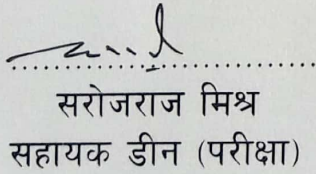 सरोजराज मिश्र
सहायक डीन (परीक्षा)